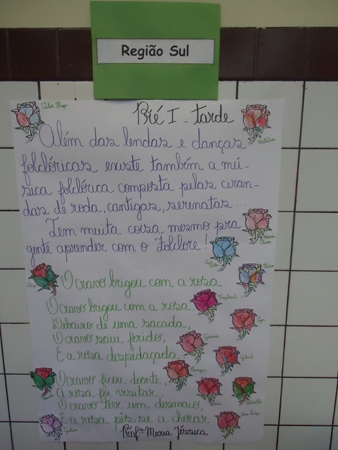 Região Sul
Pré I - tarde
Além das lendas e danças
folclóricas existe também a mú-
sica folclórica composta pelas ciran-
das de roda, cantigas, serenatas...
Tem muita coisa mesmo pra
gente aprender com o Folclore!
O cravo brigou com a rosa
O cravo brigou com a rosa
Debaixo de uma sacada,
O cravo saiu ferido,
E a rosa despedaçada.
O cravo ficou doente,
A rosa foi visitar,
O cravo teve um desmaio,
E a rosa pôs-se a chorar.
Profª Maria Jéssica